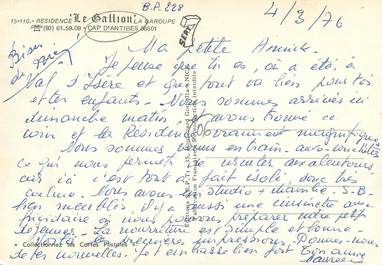 B.P. 228
Le Gallion
15-110.- RESIDENCE LA GAROUPE
(93) 61.59.09 - CAP D'ANTIBES 06601
4/3/76
Ma petite Annick.
Je pense que tu es, où a été à
Val d'Isère et que tout va bien pour toi
et les enfants. Nous sommes arrivés ici
dimanche matin avons trouvé ce
coin et la Résidence vraiment magnifiques
Nous sommes venus en train-auto-couchettes
ce qui nous permet de circuler aux alentours,
car ici c'est tout à fait isolé, donc très
calme. Nous avons studio + chambre - S-B-
bien meublés, il y a aussi une cuisinette avec
frigidaire où nous pouvons préparer notre petit
déjeuner. La nourriture est simple et bonne -
premières impressions. Donne-nous
de tes nouvelles. Je t'embrasse bien fort
Collectionnez les Cartes Postales